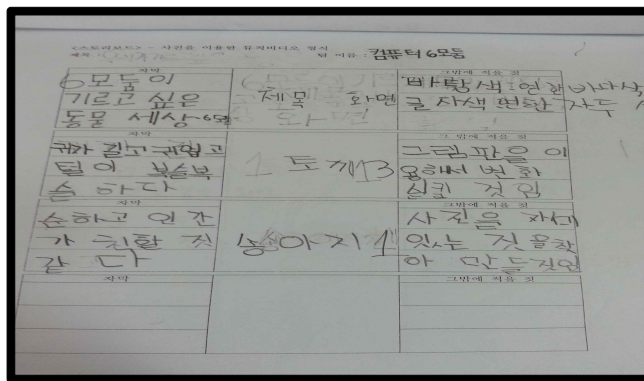 <스토리보드> - 사진을 이용한 뮤직비디오 형식
제목
팀 이름 : 컴퓨터 6모둠
자막
그밖에 적을 것
6모둠이
기르고 싶은
동물 세상
제목 화면
바탕색:연한바다색
글자색 변한 자두
자막
그밖에 적을 것
귀가 길고 귀엽고
털이 복슬복
슬 하다
1 토끼 13
그램판을 이
용해서 변화
실킬 것임
자막
그밖에 적을 것
순하고 인간
가 친할 것
같 다
송아지 1
사진을 자세
있는 것을 찾
아 만들것임
자막
그밖에 적을 것